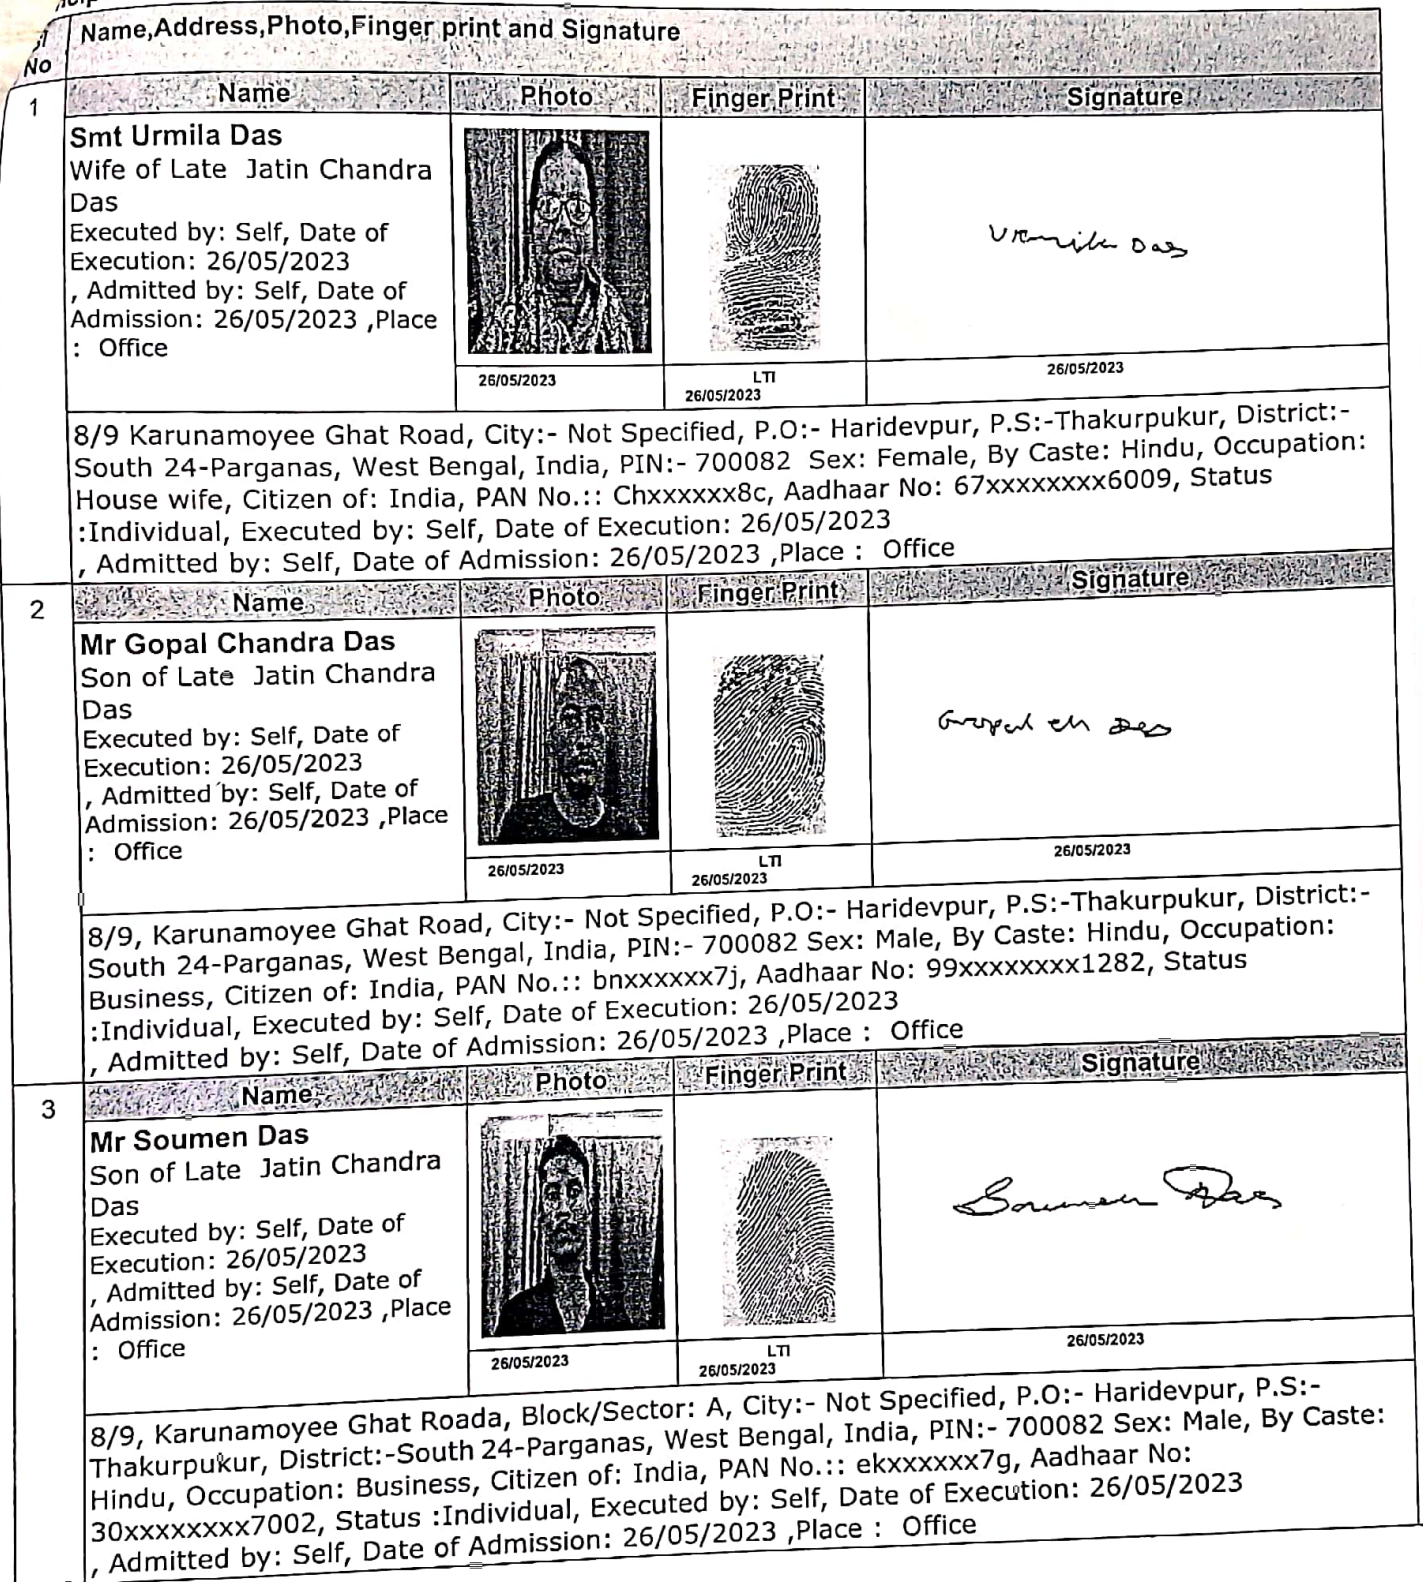 No
Name,Address,Photo,Finger print and Signature
1
Name Photo Finger Print Signature
Smt Urmila Das
Wife of Late Jatin Chandra
Das
Executed by: Self, Date of
Execution: 26/05/2023
, Admitted by: Self, Date of
Admission: 26/05/2023 ,Place
: Office
Urmila Das
26/05/2023
LTI
26/05/2023
26/05/2023
8/9 Karunamoyee Ghat Road, City:- Not Specified, P.O:- Haridevpur, P.S:-Thakurpukur, District:-
South 24-Parganas, West Bengal, India, PIN:- 700082 Sex: Female, By Caste: Hindu, Occupation:
House wife, Citizen of: India, PAN No.:: Chxxxxxx8c, Aadhaar No: 67xxxxxxxx6009, Status
:Individual, Executed by: Self, Date of Execution: 26/05/2023
, Admitted by: Self, Date of Admission: 26/05/2023 ,Place : Office
2
Name Photo Finger Print Signature
Mr Gopal Chandra Das
Son of Late Jatin Chandra
Das
Executed by: Self, Date of
Execution: 26/05/2023
, Admitted by: Self, Date of
Admission: 26/05/2023 ,Place
: Office
Gopal ch Das
26/05/2023
LTI
26/05/2023
26/05/2023
8/9, Karunamoyee Ghat Road, City:- Not Specified, P.O:- Haridevpur, P.S:-Thakurpukur, District:-
South 24-Parganas, West Bengal, India, PIN:- 700082 Sex: Male, By Caste: Hindu, Occupation:
Business, Citizen of: India, PAN No.:: bnxxxxxx7j, Aadhaar No: 99xxxxxxxx1282, Status
:Individual, Executed by: Self, Date of Execution: 26/05/2023
, Admitted by: Self, Date of Admission: 26/05/2023 ,Place : Office
3
Name Photo Finger Print Signature
Mr Soumen Das
Son of Late Jatin Chandra
Das
Executed by: Self, Date of
Execution: 26/05/2023
, Admitted by: Self, Date of
Admission: 26/05/2023 ,Place
: Office
Soumen Das
26/05/2023
LTI
26/05/2023
26/05/2023
8/9, Karunamoyee Ghat Roada, Block/Sector: A, City:- Not Specified, P.O:- Haridevpur, P.S:-
Thakurpukur, District:-South 24-Parganas, West Bengal, India, PIN:- 700082 Sex: Male, By Caste:
Hindu, Occupation: Business, Citizen of: India, PAN No.:: ekxxxxxx7g, Aadhaar No:
30xxxxxxxx7002, Status :Individual, Executed by: Self, Date of Execution: 26/05/2023
, Admitted by: Self, Date of Admission: 26/05/2023 ,Place : Office